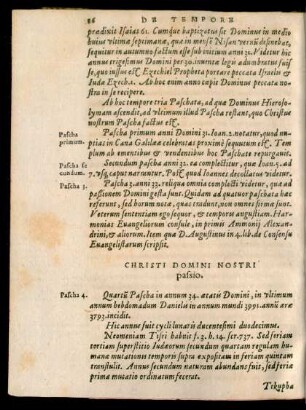 86 DE TEMPORE
prædixit Isaias 61. Cumque baptizatus sit Dominus in medio
huius vltimæ septimanæ, quæ in mense Nisan
sequitur in autumno fallum esse hoc initium anni 31. Videtur hic
annus erigesimus Domini per 30. in veteri lege adumbratus fuisse,
quo iussus est Ezechiel Propheta portare peccata Israelis &
Iuda Ezech. 4. Ab hoc enim anno cœpit Dominus peccata nostra
in se recipere.
Ab hoc tempore tria Paschata, ad quæ Dominus Hierosolymam
ascendit, ad vltimum illud Pascha restant, quo Christus
nostrum Pascha factus est.
Pascha primum.
Pascha primum anni Domini 31. Ioan. 2. notatur, quod nuptias
in Cana Galilea celebratas proximè sequutum est. Templum
ab ementibus & vendentibus hoc Paschate repurgauit.
Pascha secundum.
Secundum pascha anni 32. ea complectitur, quæ Ioan. 5. ad
7. vsq; caput narrantur. Post quod Ioannes decollatus videtur.
Pascha 3.
Pascha 3. anni 33. reliqua omnia complecti videtur, quæ ad
passionem Domini gesta sunt. Quidam ad quatuor paschata hæc
referunt, sed horum nota, quæ traduit, non omnes firma sunt.
Veterum sententiam ego sequor, & temporis augustiam. Harmonias
Euangeliorum consule, in primis Ammonij Alexandrini,
& aliorum. Item quæ D. Augustinus in 4. lib. de Consensu
Euangelistarum scripsit.
CHRISTI DOMINI NOSTRI
passio.
Pascha 4.
Quartū Pascha in annum 34. ætatis Domini, in vltimum
annum hebdomadum Danielis in annum mundi 3995. annū æræ
3793. incidit.
Hic annus fuit cycli lunaris ducentesimi duodecimus.
Neomeniam Tisri habuit f. 3. h. 14. scr. 737. Sed feriam
tertiam superstitio Iudæorum secundum quartam regulam humanæ
mutationis temporis supra expositam in feriam quintam
transtulit. Annus secundum naturam abundans fuisset, sed feria
prima mutatio ordinatum fecerat.
Tekypha